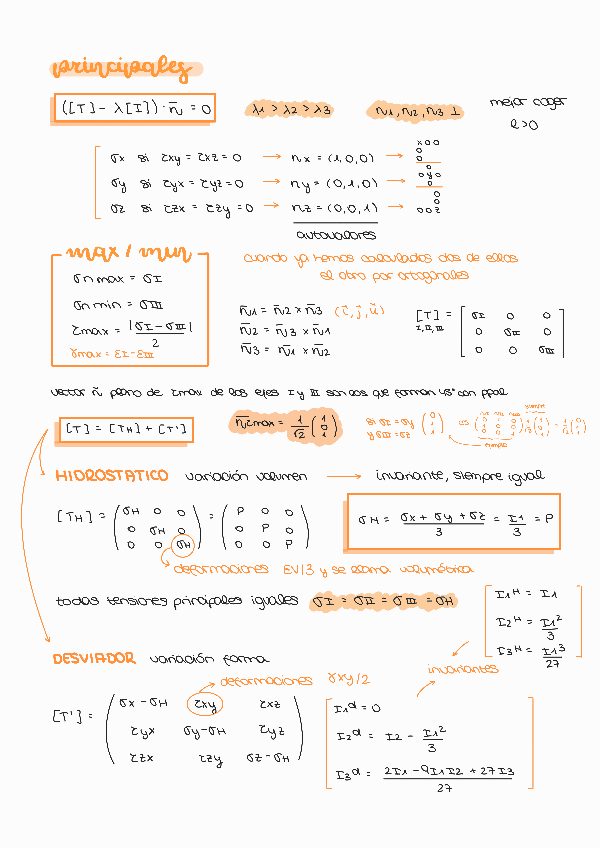 principales
([T] - λ[I]) · n̄ = 0
λ1 > λ2 > λ3
n1, n2, n3 ⊥
mejor coger
l>0
σx si τxy = τxz = 0 → nx = (1,0,0) → x00 0 0
σy si τyx = τyz = 0 → ny = (0,1,0) → 0 0y0 0
σz si τzx = τzy = 0 → nz = (0,0,1) → 0 0 00z
autovalores
max / min
σn max = σI
σn min = σIII
τmax = |σI - σIII| / 2
γmax = εI - εIII
cuando ya hemos calculados dos de ellos
el otro por ortogonales
n̄1 = n̄2 x n̄3 (i, j, u)
n̄2 = n̄3 x n̄1
n̄3 = n̄1 x n̄2
[T] I,II,III = [ σI 0 0
0 σII 0
0 0 σIII ]
vector n̄ plano de τmax de los ejes I y III son los que forman 45° con ppal
[T] = [TH] + [T']
n̄τmax = 1/√2 (1 0 1)
si σI = σy
y σIII = σz
(0 1 1)
siempre
ejemplo
HIDROSTATICO variación volumen → invariante, siempre igual
[TH] = ( σH 0 0
0 σH 0
0 0 σH ) = ( P 0 0
0 P 0
0 0 P )
σH = σx + σy + σz / 3 = I1 / 3 = P
deformaciones EV/3 y se llama volumétrica
todas tensiones principales iguales σI = σII = σIII = σH
I1H = I1
I2H = I1² / 3
I3H = I1³ / 27
invariantes
DESVIADOR variación forma
deformaciones γxy/2
[T'] = ( σx - σH τxy τxz
τyx σy-σH τyz
τzx τzy σz - σH )
I1d = 0
I2d = I2 - I1² / 3
I3d = 2I1 - 9I1I2 + 27I3 / 27